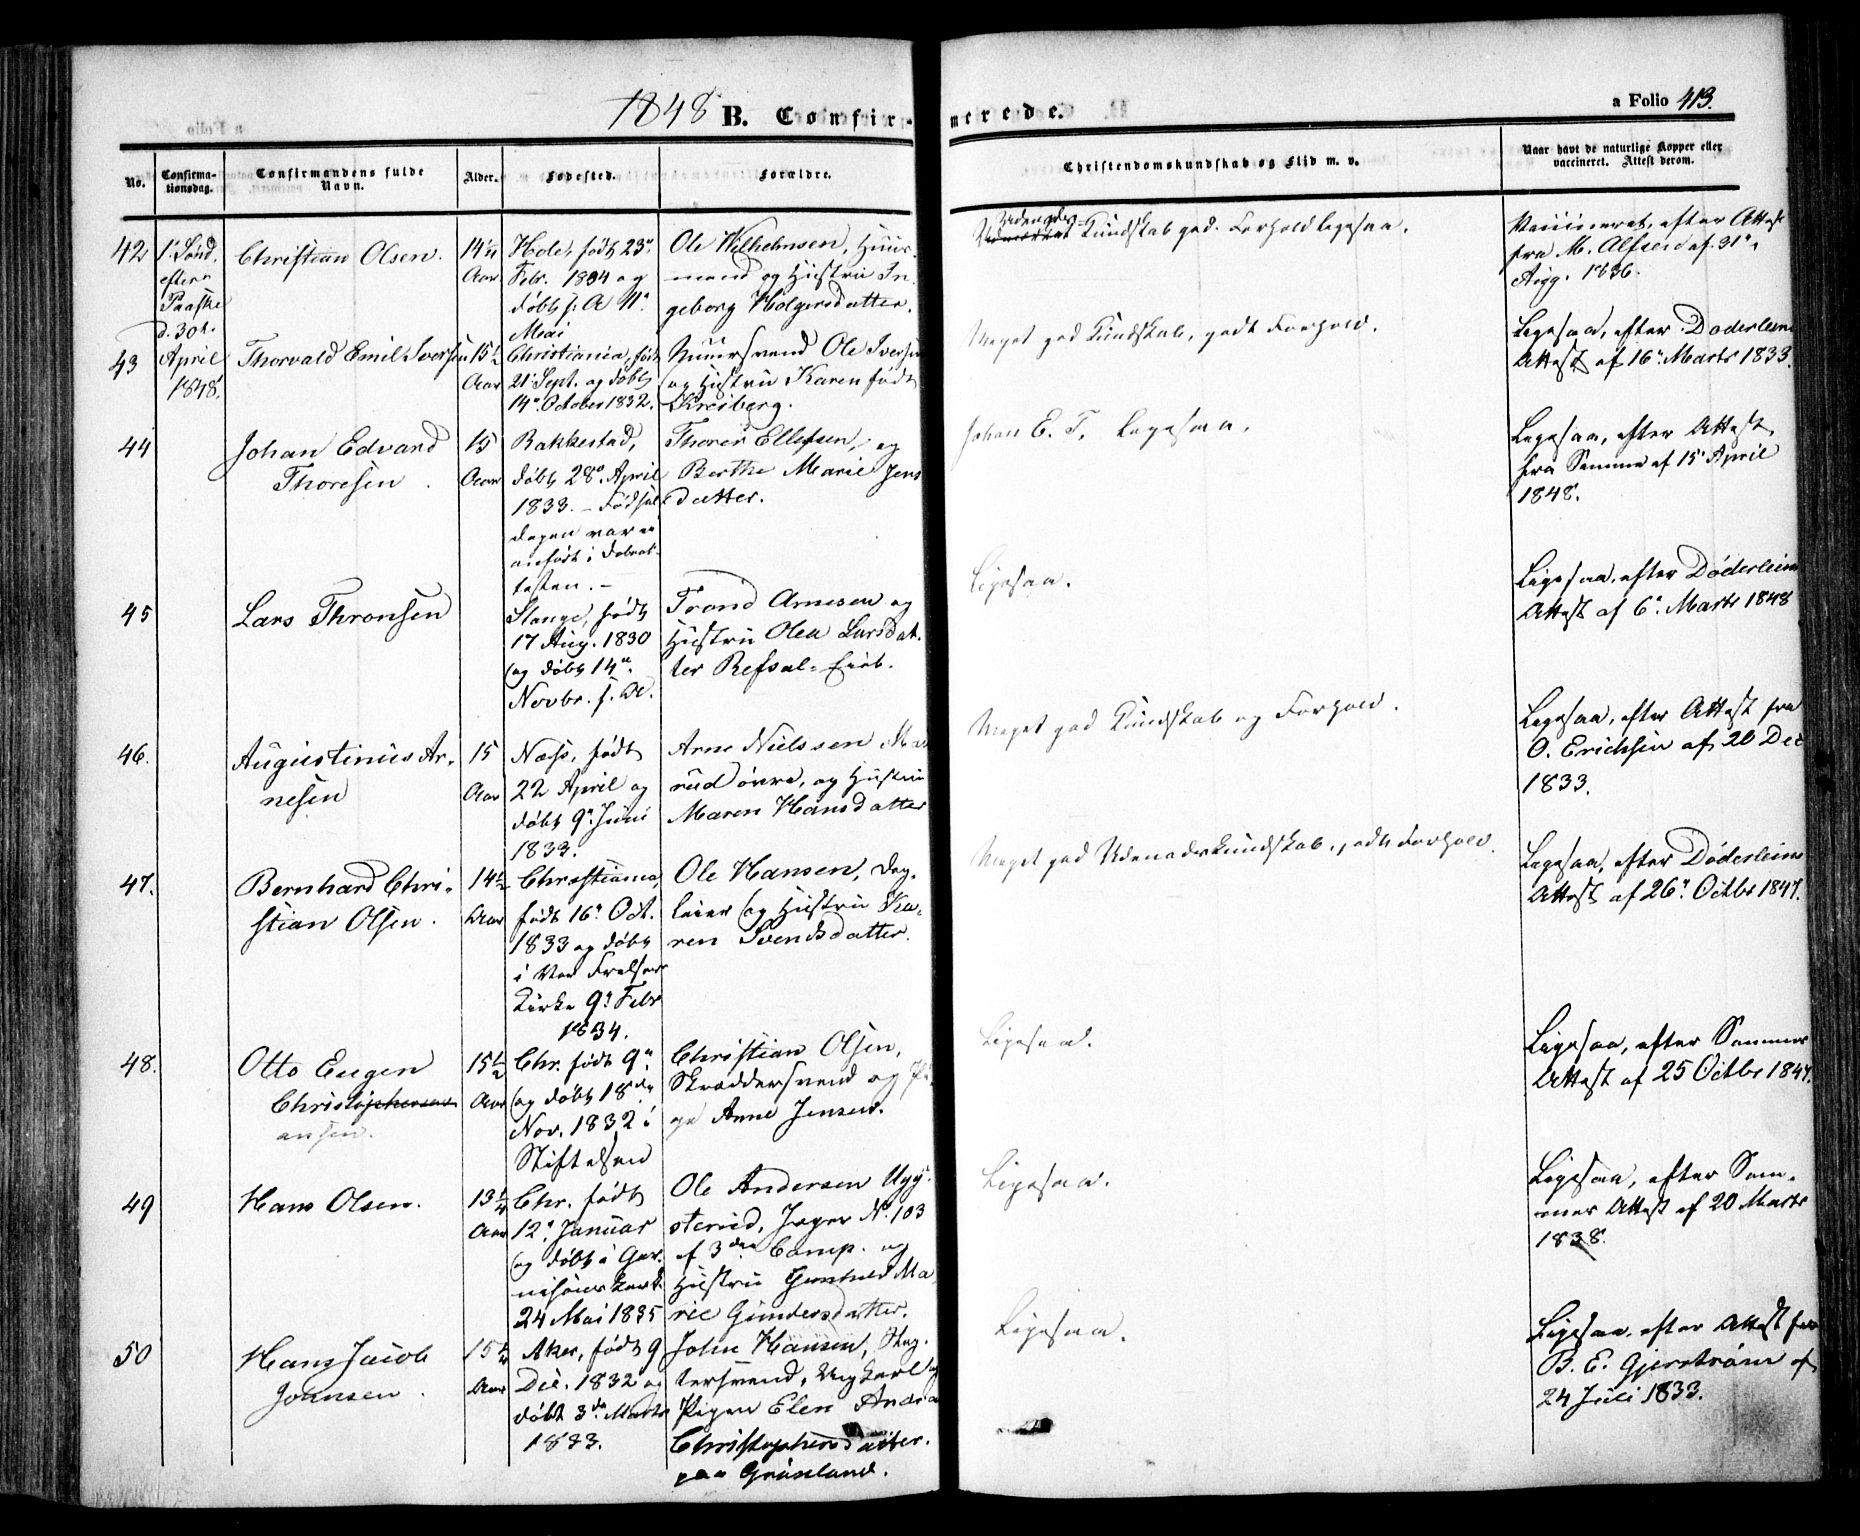 1848 B. Confirmerede.
a Folio 413.
No.
Confirma-
tionsdag.
Confirmandens fulde
Navn.
Alder.
Fødested.
Forældre.
Christendomskundskab og Flid m. v.
Naar havt de naturlige Kopper eller
vaccineret. Attest derom.
1ste Sönd.
efter
Paaske
d. 30te
April
1848.
42
Christian Olsen.
Aar
Hole, født 23de
Febr. 1834 og
døbt s. A 11te
Mai
Ole Wilhelmsen, Huus-
mand og Hustru In-
geborg Holgersdatter.
Kundskab god. Forhold ligesaa.
Vaccineret, efter Attest
fra M. Alfsen af 31te
Aug. 1836.
43
Thorvald Emil Iversen
15 1/2
Aar
Christiania, født
21 Sept. og døbt
14de October 1832.
Muursvend Ole Iversen
og Hustru Karen født
Kreiberg.
Meget god Kundskab, godt Forhold.
Ligesaa, efter Døderleins
Attest af 16de Marts 1833.
44
Johan Edvard
Thoresen.
15
Aar
Rakkestad,
døbt 28de April
1833. – Fødsels
dagen var ei
anført i Døbeat-
testen. –
Thorer Ellefsen, og
Berthe Marie Jens
datter.
Johan E. T. Ligesaa.
Ligesaa, efter Attest
fra Samme af 15 April
1848.
45
Lars Thronsen
Stange, født
17 Aug. 1830
og døbt 14de
Novbr. s. A.
Trond Arnesen og
Hustru Olea Larsdat-
ter Refsal-Eieb.
Ligesaa.
Ligesaa, efter Døderleins
Attest af 6te Marts 1848
46.
Augustinus Ar-
nesen
15
Aar
Næss, født
22 April og
døbt 9de Juni
1833.
Arne Nielssen
rud øvre, og Hustru
Maren Hansdatter
Meget god Kundskab og Forhold.
Ligesaa, efter Attest fra
O. Erichsen af 20 Dec
1833.
47.
Bernhard Chri-
stian Olsen.
14 1/2
Aar
Christiania,
født 16de Oct.
1833 og døbt
i Vor Frelsers
Kirke 9de Febr
1834.
Ole Hansen, Dag-
leier og Hustru Ka-
ren Svendsdatter.
Meget god Udenadskundskab, godt Forhold.
Ligesaa, efter Døderleins
Attest af 26de Octbr 1847.
48.
Otto Eugen
Christophersen
ansen.
15 1/2
Aar
Chr. født 9de
og døbt 18de
Nov. 1832 i
Stiftelsen
Christian Olsen,
Skræddersvend og Pi-
ge Anne Jensen.
Ligesaa.
Ligesaa, efter Sammes
Attest af 25 Octbr 1847.
49
Hans Olsen.
13 1/4
Aar
Chr. født
12te Januar
og døbt i Gar-
nisonskirken
24 Mai 1835
Ole Andersen Ugg-
sterud, Jæger No. 103
af 3die Comp. og
Hustru Gunhild Ma
rie Gundersdatter.
Ligesaa.
Ligesaa, efter Sam-
mes Attest af 20 Marts
1838.
50
Hans Jacob
Johnsen.
15 1/4
Aar
Aker, født 9
Dec. 1832 og
døbt 3die Marts
1833.
John Hansen, Slag-
tersvend, Ungkarl og
Pigen Elen Andrea
Christophersdatter.
paa Grønland.
Ligesaa.
Ligesaa, efter Attest fra
B. E. Gjerstrøm af
24 Juli 1833.